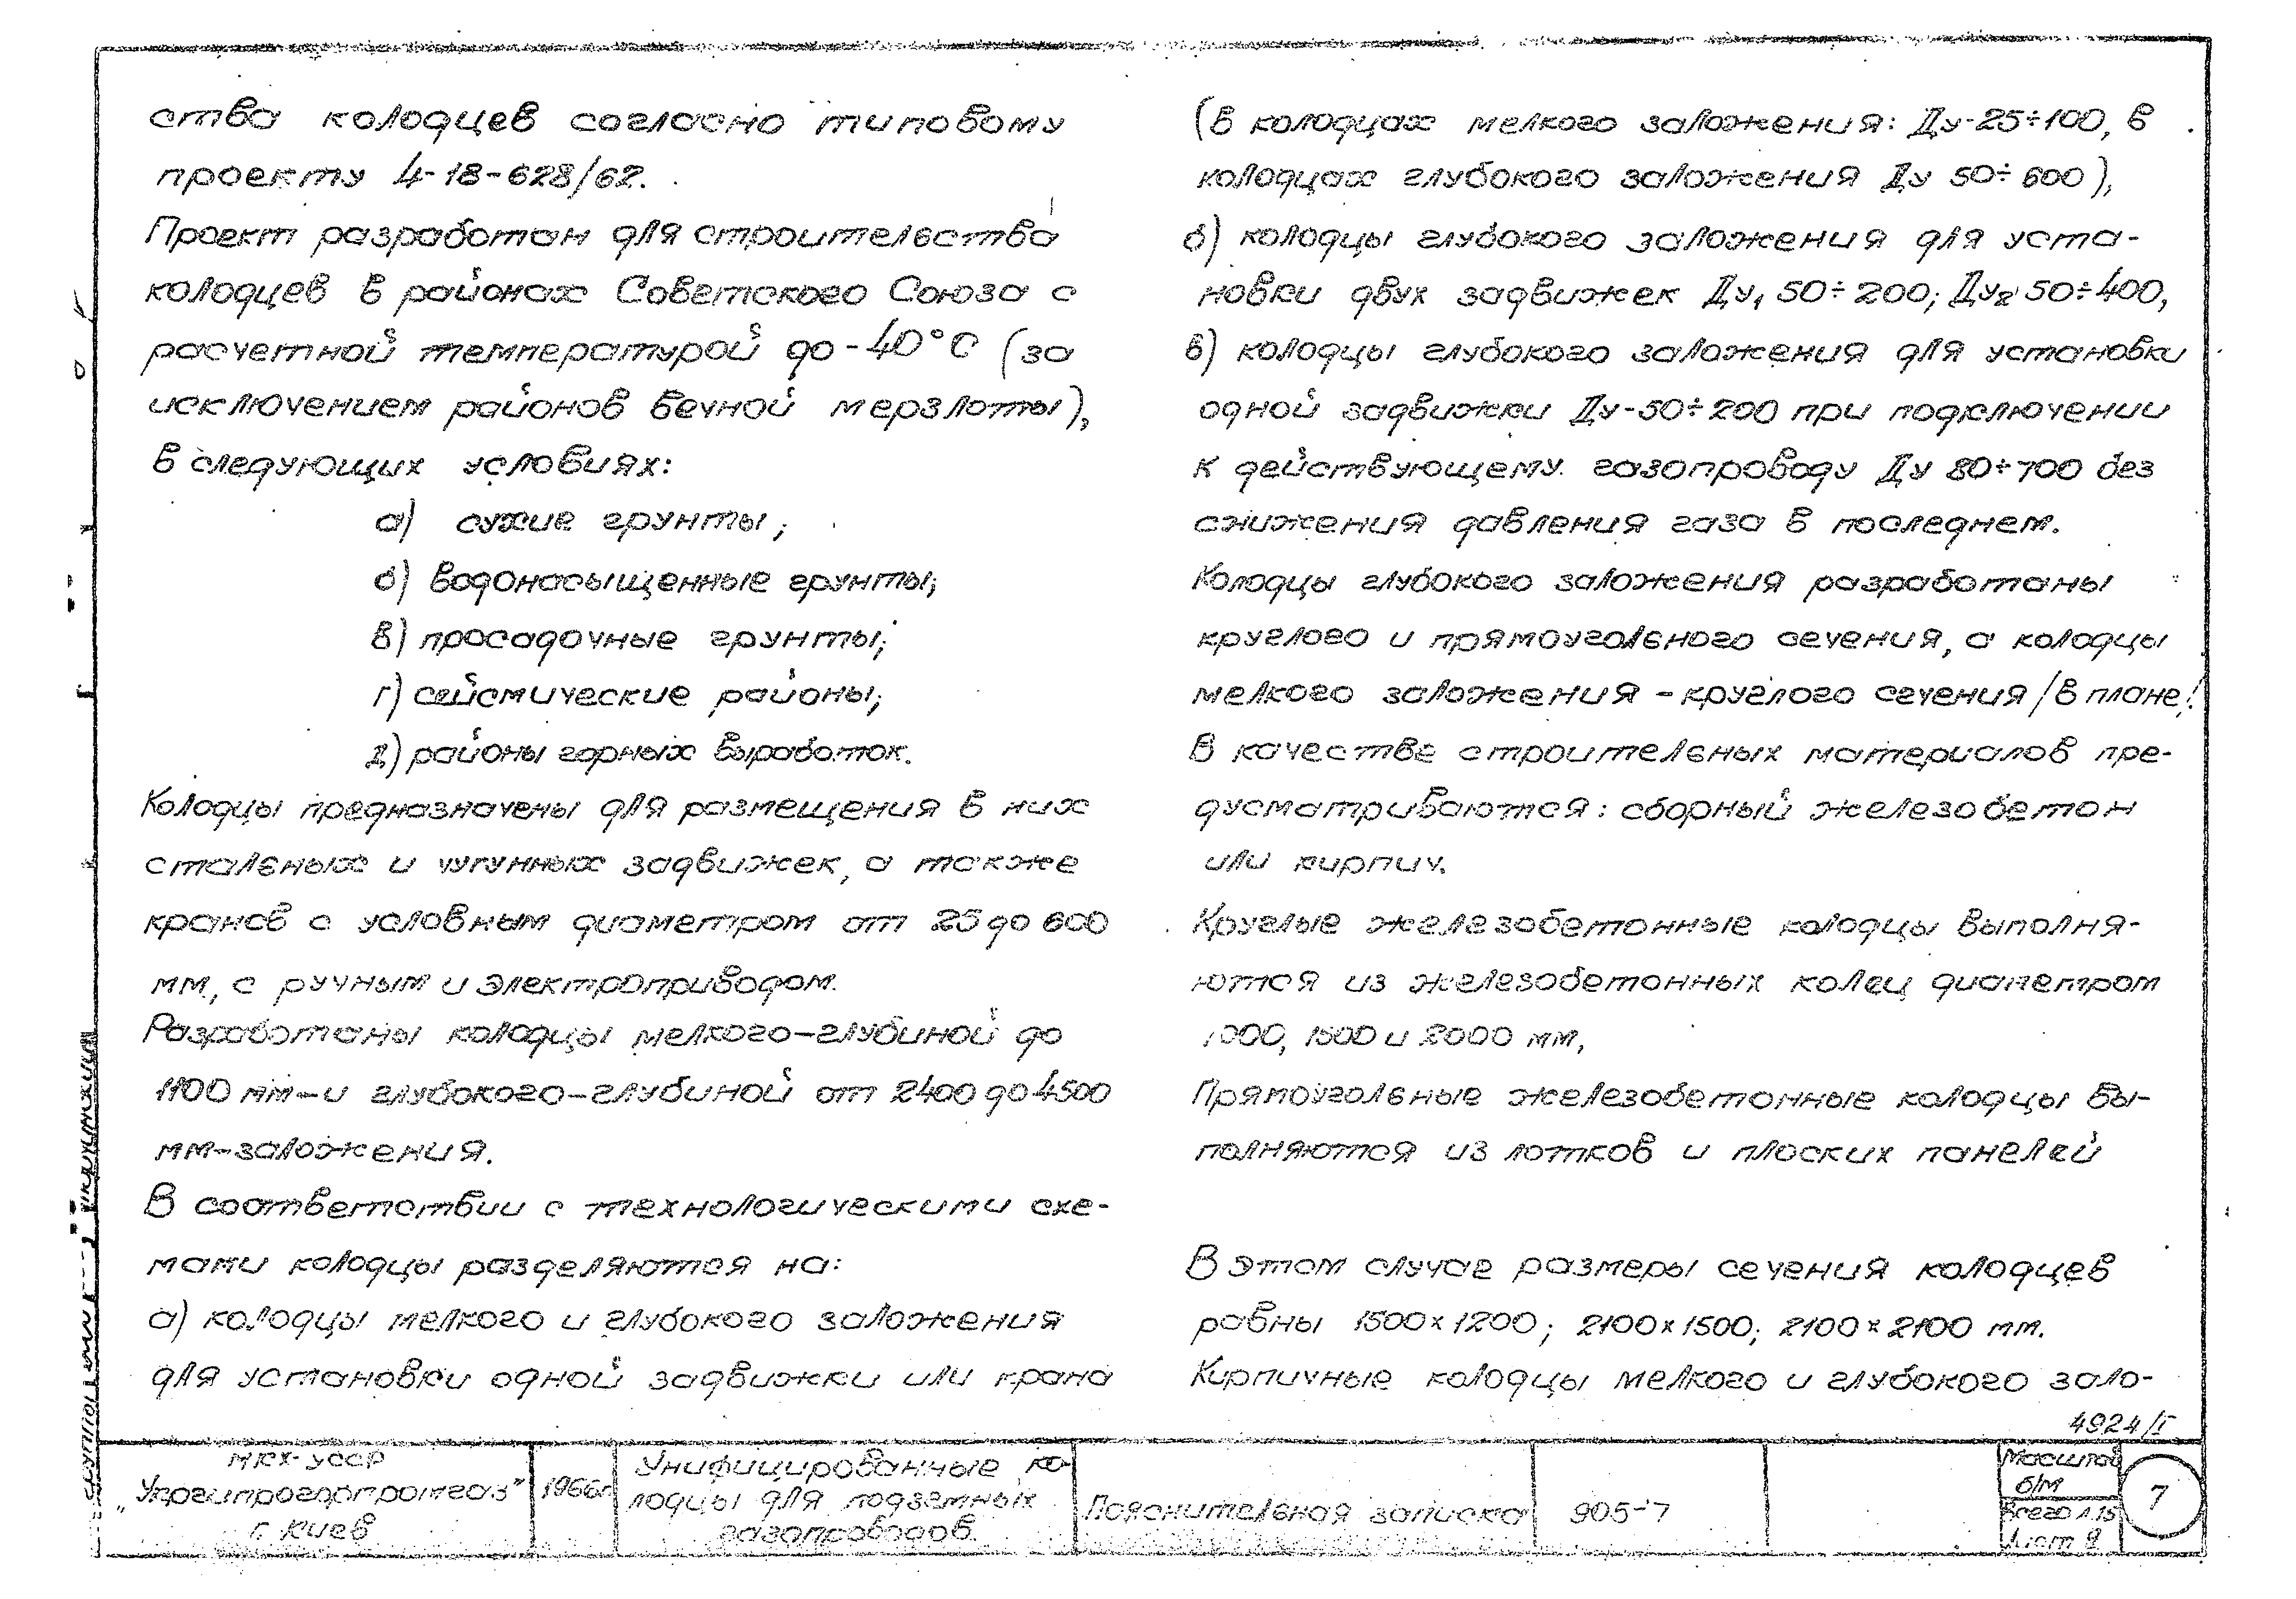 ства колодцев согласно типовому
проекту 4-18-628/62.
Проект разработан для строительства
колодцев в районах Советского Союза с
расчетной температурой до -40°С (за
исключением районов вечной мерзлоты),
в следующих условиях:
а) сухие грунты;
б) водонасыщенные грунты;
в) просадочные грунты;
г) сейсмические районы;
д) районы горных выработок.
Колодцы предназначены для размещения в них
стальных и чугунных задвижек, а также
кранов с условным диаметром от 25 до 600
мм, с ручным и электроприводом.
Разработаны колодцы мелкого-глубиной до
1100 мм-и глубокого-глубиной от 2400 до 4500
мм-заложения.
В соответствии с технологическими схе-
мами колодцы разделяются на:
а) колодцы мелкого и глубокого заложения
для установки одной задвижки или крана
(в колодцах мелкого заложения: Ду-25÷100, в
колодцах глубокого заложения Ду 50÷600),
б) колодцы глубокого заложения для уста-
новки двух задвижек Ду₁ 50÷200; Ду₂ 50÷400,
в) колодцы глубокого заложения для установки
одной задвижки Ду-50÷200 при подключении
к действующему газопроводу Ду 80÷700 без
снижения давления газа в последнем.
Колодцы глубокого заложения разработаны
круглого и прямоугольного сечения, а колодцы
мелкого заложения - круглого сечения /в плане/.
В качестве строительных материалов пре-
дусматриваются: сборный железобетон
или кирпич.
Круглые железобетонные колодцы выполня-
ются из железобетонных колец диаметром
1000, 1500 и 2000 мм,
Прямоугольные железобетонные колодцы вы-
полняются из лотков и плоских панелей
В этом случае размеры сечения колодцев
равны 1500×1200; 2100×1500; 2100×2100 мм.
Кирпичные колодцы мелкого и глубокого зало-
4924/I
МКХ-УССР
„Укргипрогорпромгаз”
г. Киев
1966г.
Унифицированные ко-
лодцы для подземных
газопроводов.
Пояснительная записка
905-7
Масштаб
б/м
Всего л.15
Лист 2
7